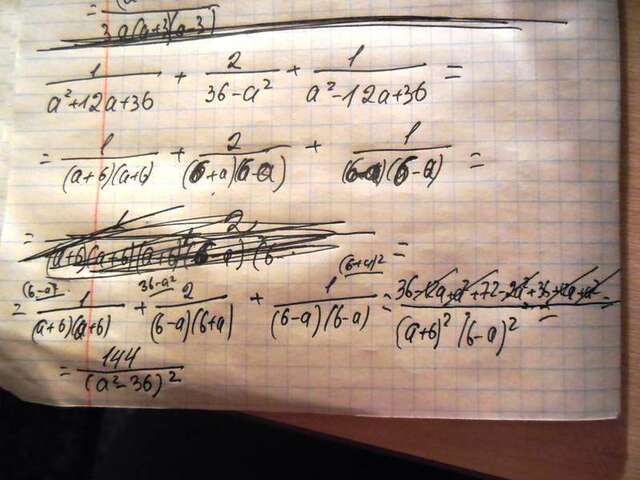 3a(a+3)(a-3)
1/(a²+12a+36) + 2/(36-a²) + 1/(a²-12a+36) =
= 1/((a+6)(a+6)) + 2/((6+a)(6-a)) + 1/((6-a)(6-a)) =
= 1 2 =
(6-a)² 36-a² (6+a)²
= 1/((a+6)(a+6)) + 2/((6-a)(6+a)) + 1/((6-a)(6-a)) = (36-12a+a²+72-2a²+36+12a+a²)/((a+6)²(6-a)²) =
= 144/(a²-36)²